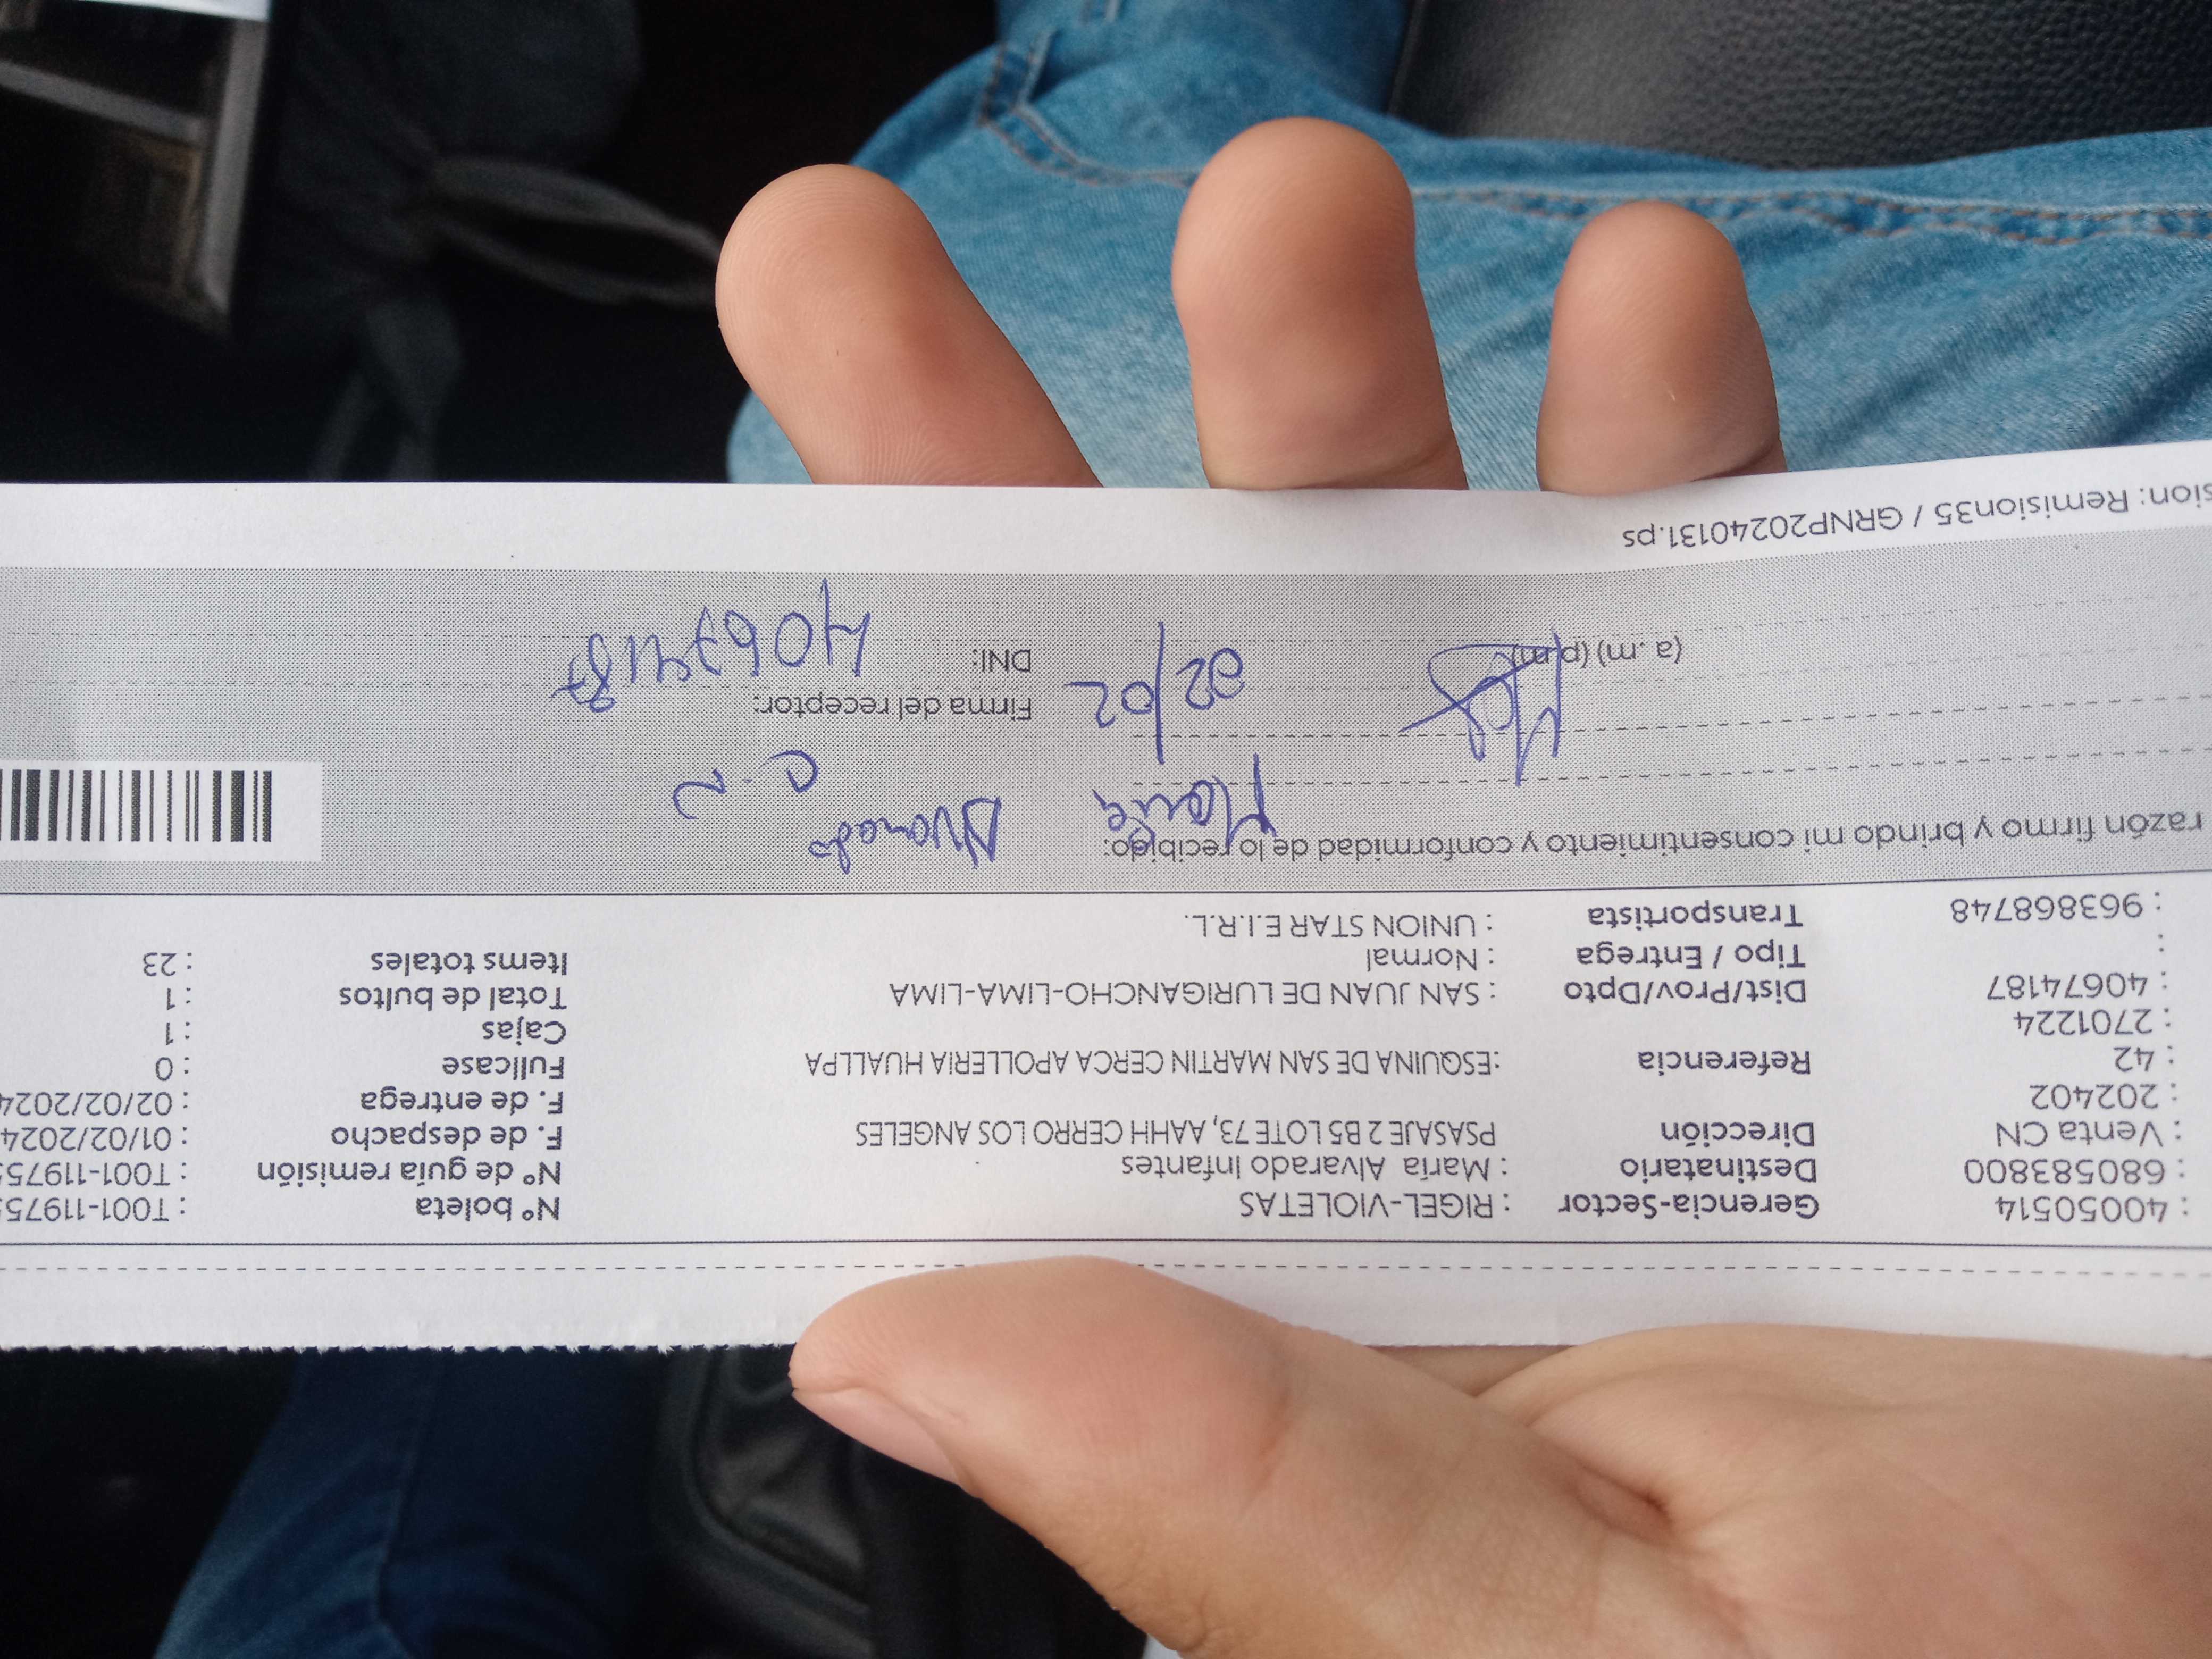 : 40050514 Gerencia-Sector : RIGEL-VIOLETAS Nº boleta : T001-119755
: 680583800 Destinatario : María Alvarado Infantes Nº de guía remisión : T001-119755
: Venta CN Dirección PSASAJE 2 B5 LOTE 73, AAHH CERRO LOS ANGELES F. de despacho : 01/02/2024
: 202402 F. de entrega : 02/02/2024
: 42 Referencia :ESQUINA DE SAN MARTIN CERCA APOLLERIA HUALLPA Fullcase : 0
: 2701224 Cajas : 1
: 40674187 Dist/Prov/Dpto : SAN JUAN DE LURIGANCHO-LIMA-LIMA Total de bultos : 1
: Tipo / Entrega : Normal Items totales : 23
: 963868748 Transportista : UNION STAR E.I.R.L.
razón firmo y brindo mi consentimiento y conformidad de lo recibido:
María Alvarado
Firma del receptor:
02/02
(a .m) (p.m) DNI: 40674187
sion: Remision35 / GRNP20240131.ps